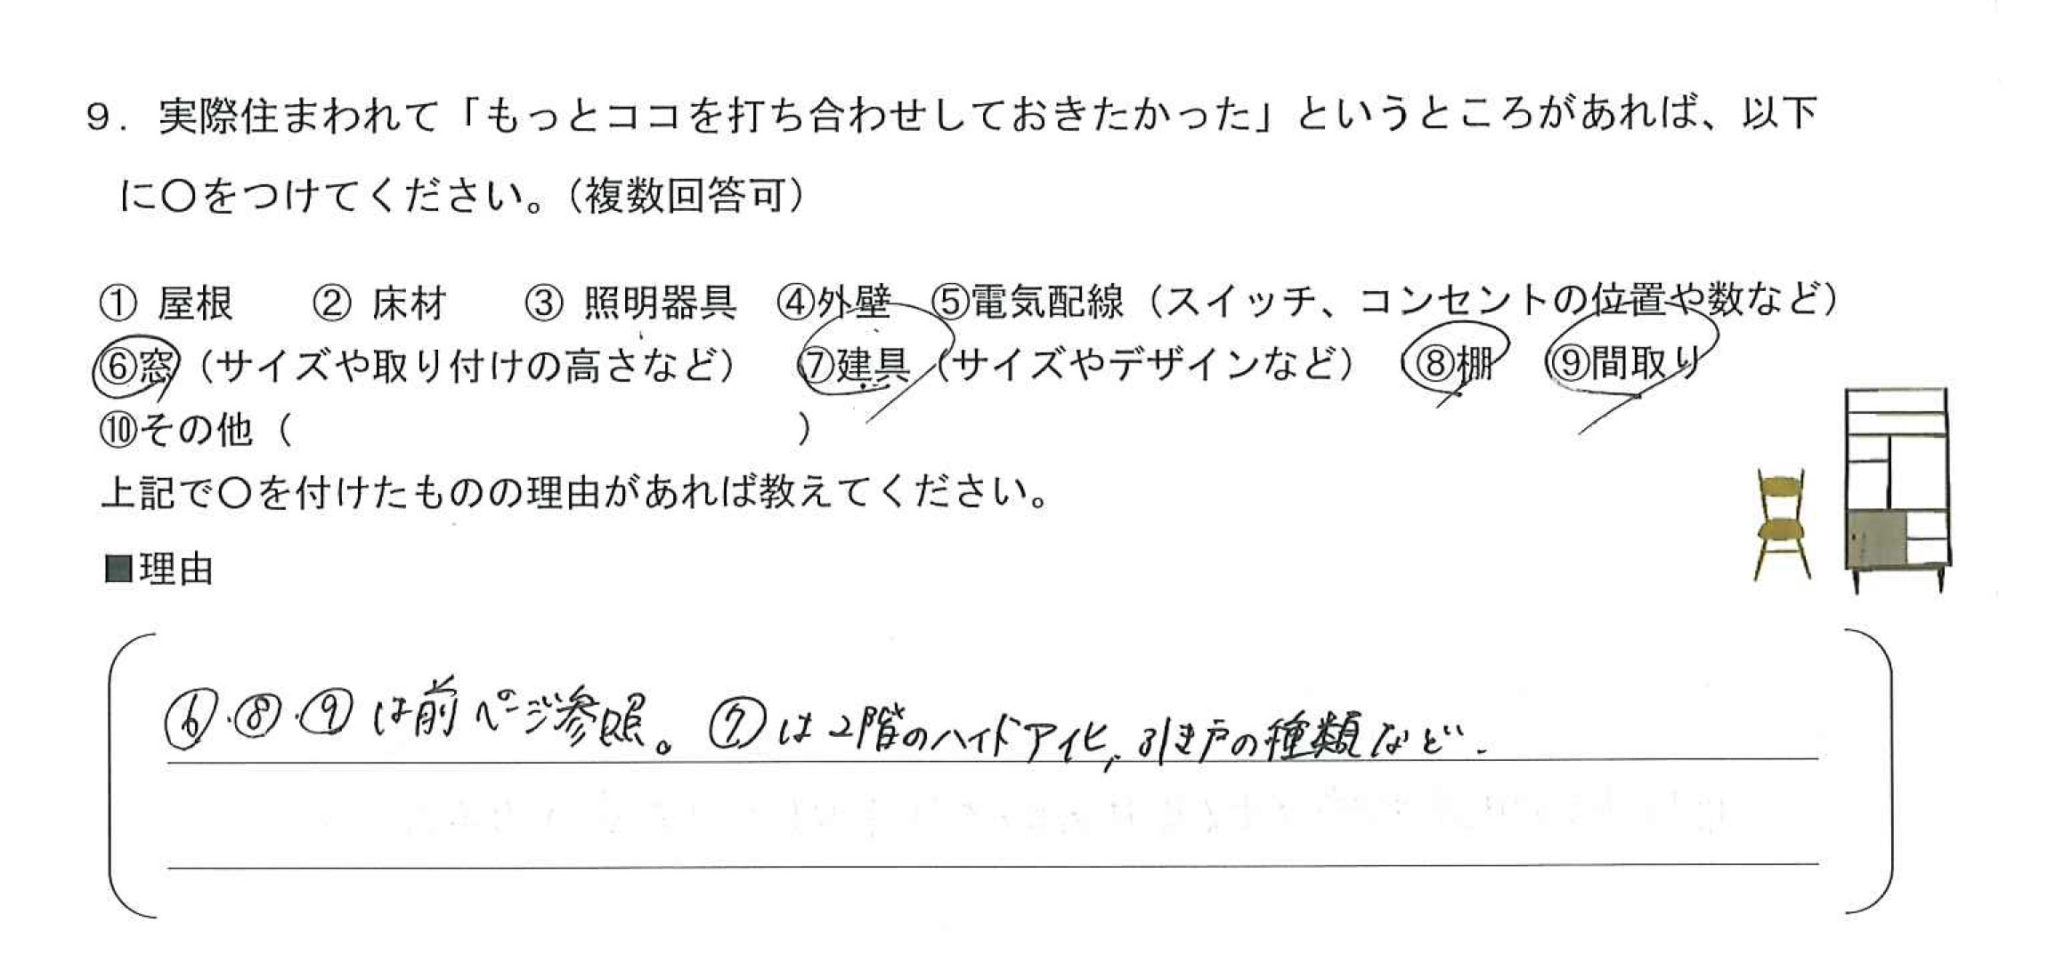 9．実際住まわれて「もっとココを打ち合わせしておきたかった」というところがあれば、以下
に○をつけてください。（複数回答可）
① 屋根　② 床材　③ 照明器具　④外壁　⑤電気配線（スイッチ、コンセントの位置や数など）
⑥窓（サイズや取り付けの高さなど）　⑦建具（サイズやデザインなど）　⑧棚　⑨間取り
⑩その他（　　　　　　　　　　）
上記で○を付けたものの理由があれば教えてください。
■理由
⑥・⑧・⑨は前ページ参照。⑦は2階のハイドア化、引き戸の種類など.